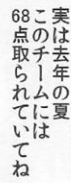 実は去年の夏
このチームには
68点取られていてね